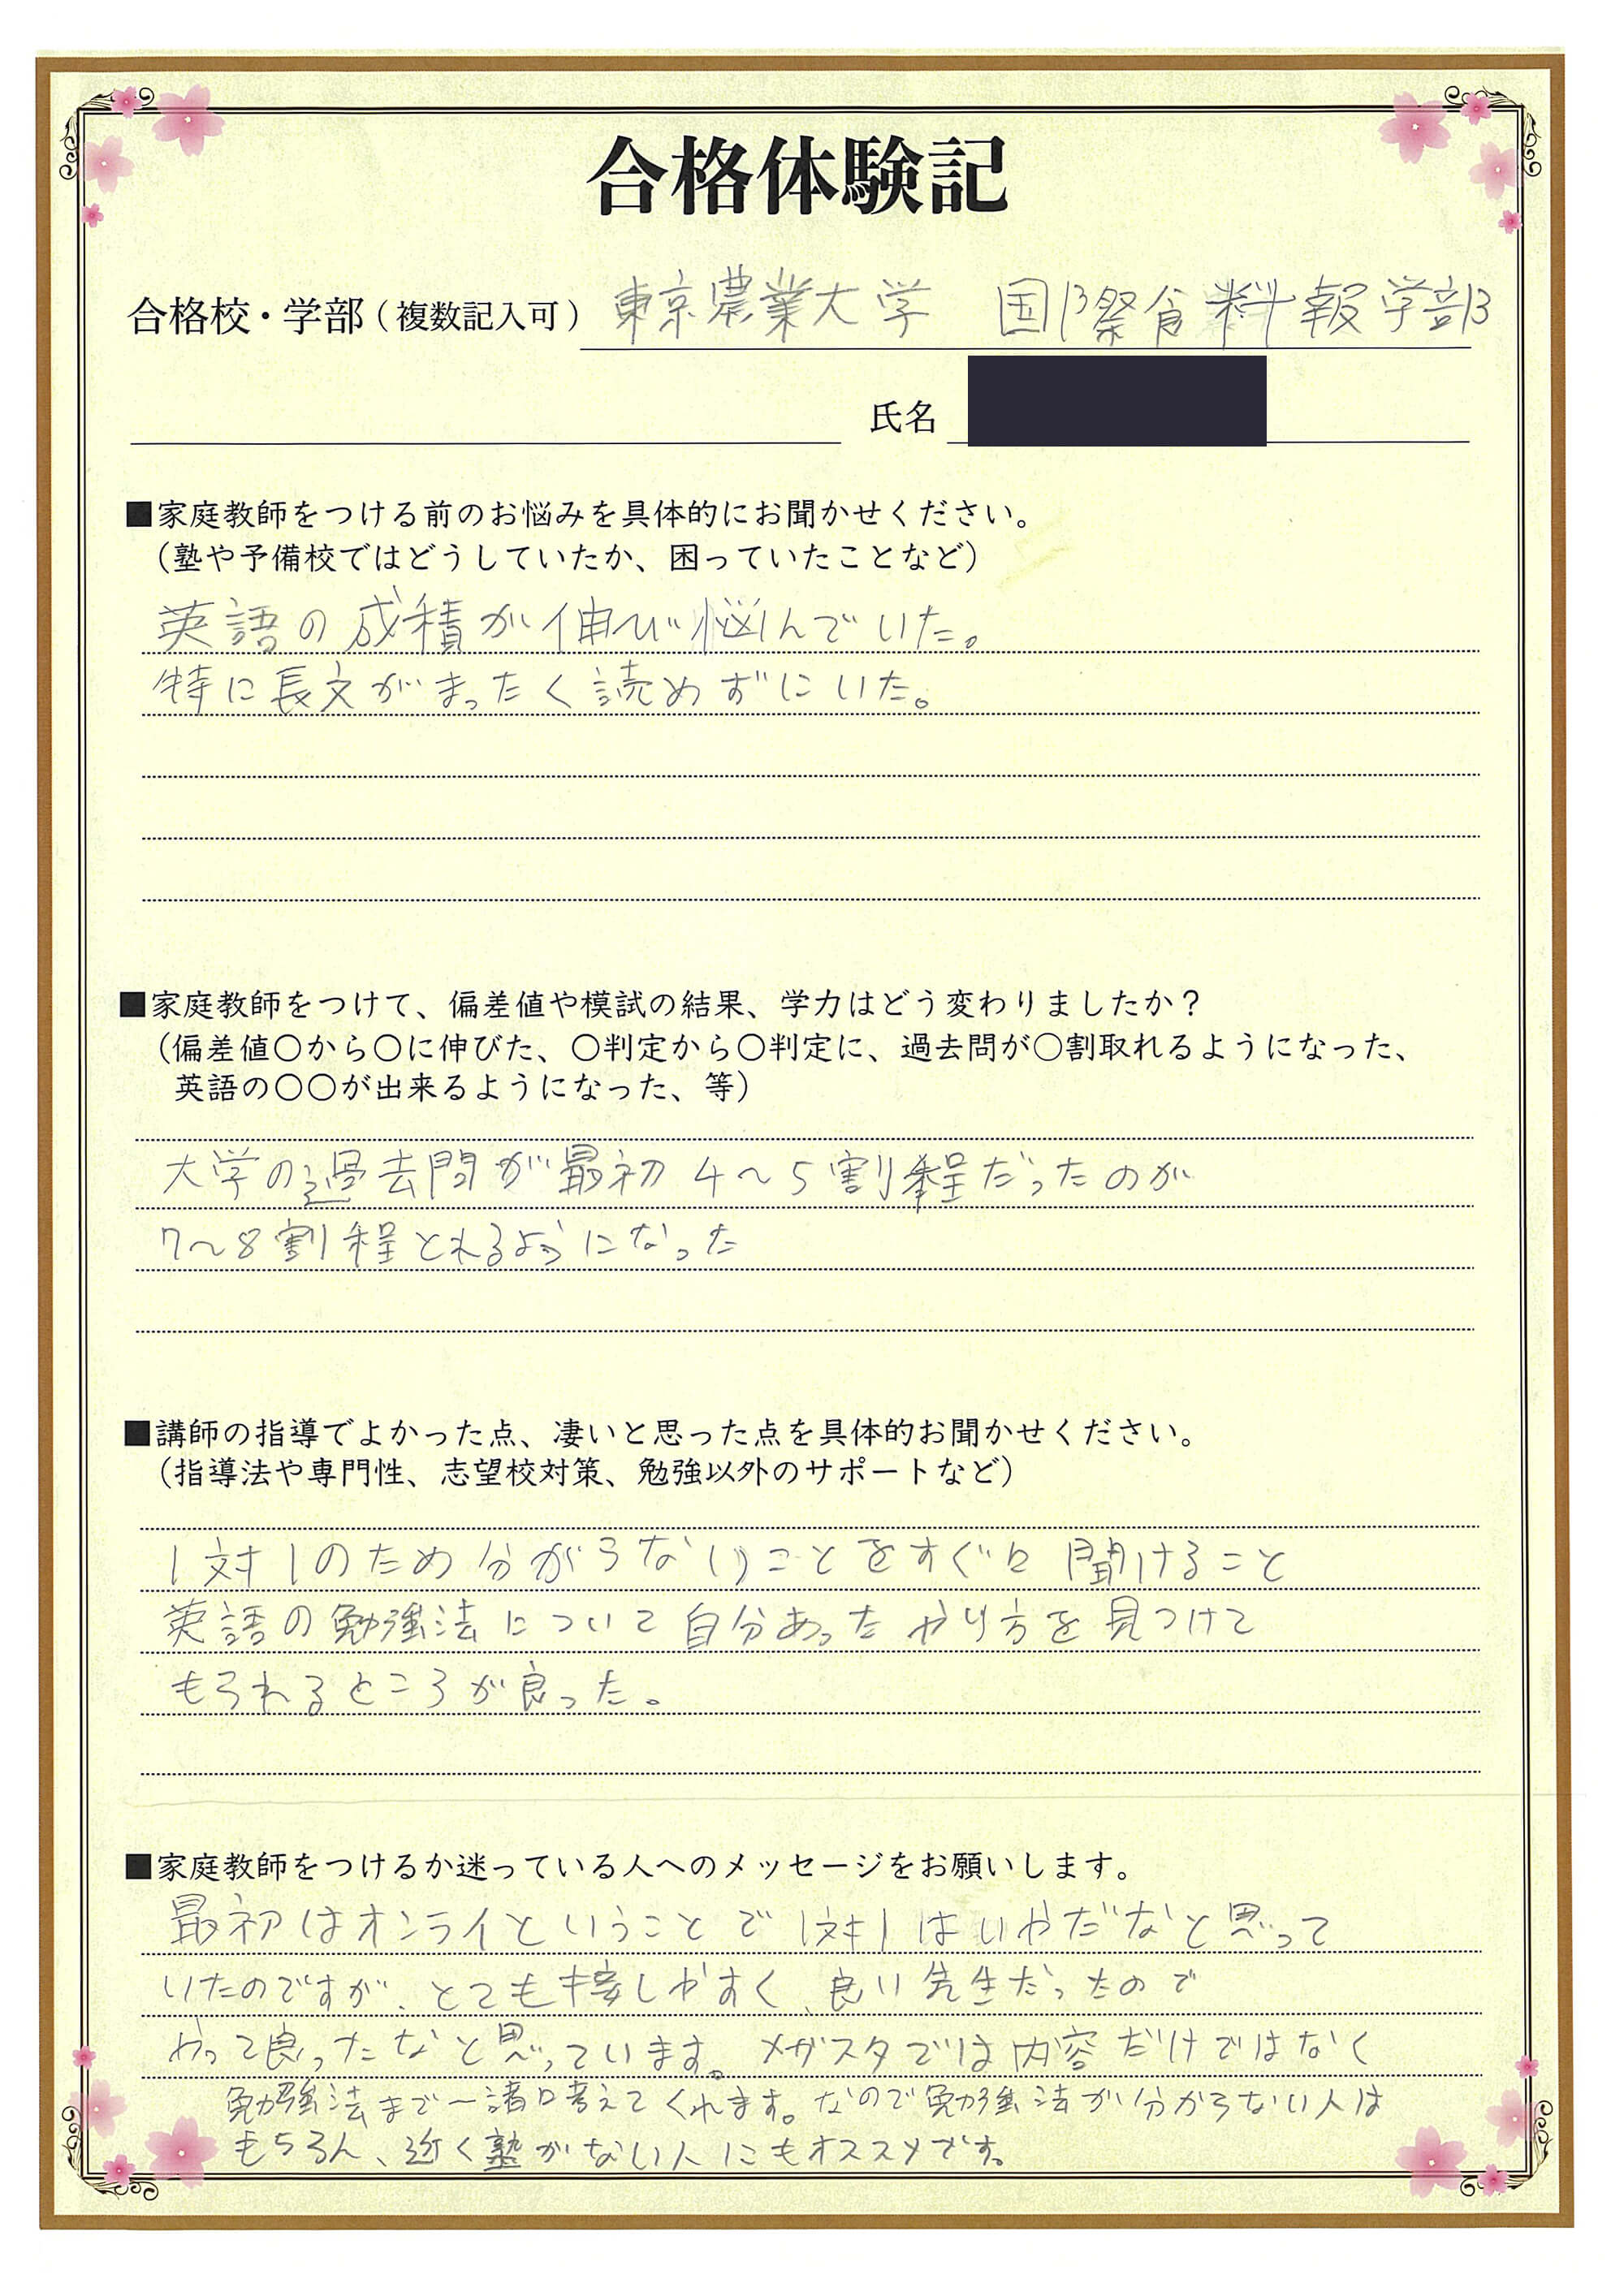 合格体験記
合格校・学部（複数記入可） 東京農業大学 国際食料報学部
氏名
■家庭教師をつける前のお悩みを具体的にお聞かせください。
（塾や予備校ではどうしていたか、困っていたことなど）
英語の成積が伸び悩んでいた。
特に長文がまったく読めずにいた。
■家庭教師をつけて、偏差値や模試の結果、学力はどう変わりましたか？
（偏差値〇から〇に伸びた、〇判定から〇判定に、過去問が〇割取れるようになった、
英語の〇〇が出来るようになった、等）
大学の過去問が最初4～5割程だったのが
7～8割程とれるようになった
■講師の指導でよかった点、凄いと思った点を具体的お聞かせください。
（指導法や専門性、志望校対策、勉強以外のサポートなど）
1対1のため分がらないことをすぐに聞けること
英語の勉強法について自分あったやり方を見つけて
もらわるところが良った。
■家庭教師をつけるか迷っている人へのメッセージをお願いします。
最初はオンライということで1対1はいやだなと思って
いたのですが、とても接しやすく、良い先生だったので
やって良ったなと思っています。メガスタでは内容だけではなく
勉強法まで一諸に考えてくれます。なので勉強法が分からない人は
もちろん、近く塾がない人にもオススメです。